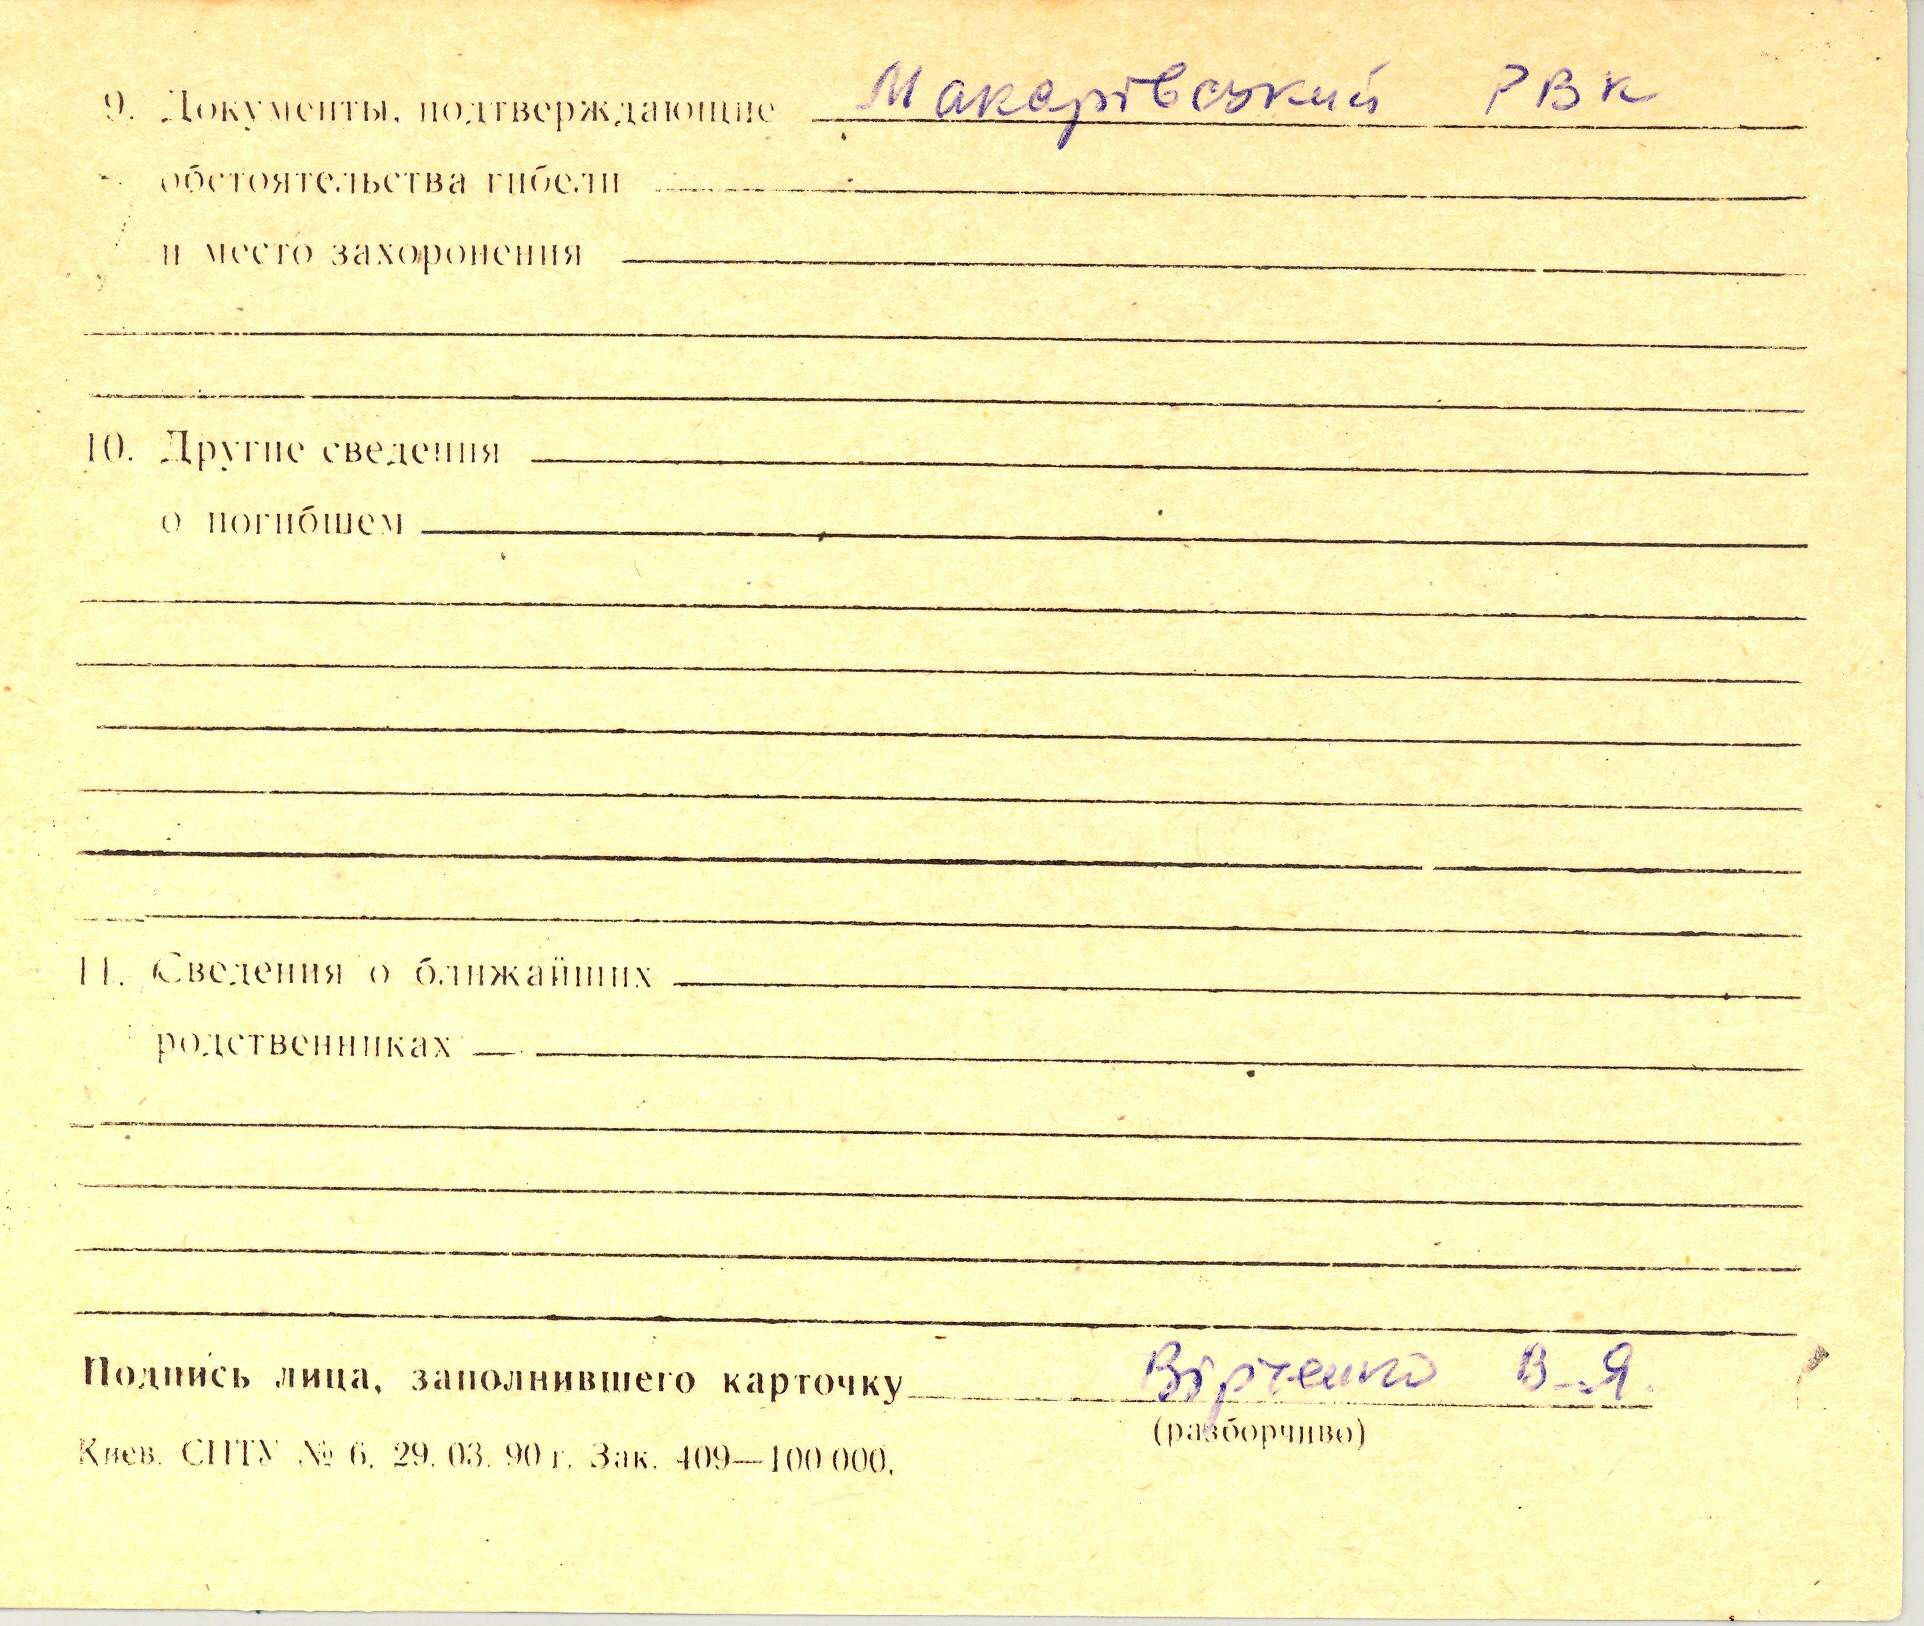 9. Документы, подтверждающие Макарівський РВК
обстоятельства гибели
и место захоронения
10. Другие сведения
о погибшем
11. Сведения о ближайших
родственниках
Подпись лица, заполнившего карточку Вірченко В.Я.
(разборчиво)
Киев. СПТУ № 6. 29. 03. 90 г. Зак. 409—100 000.